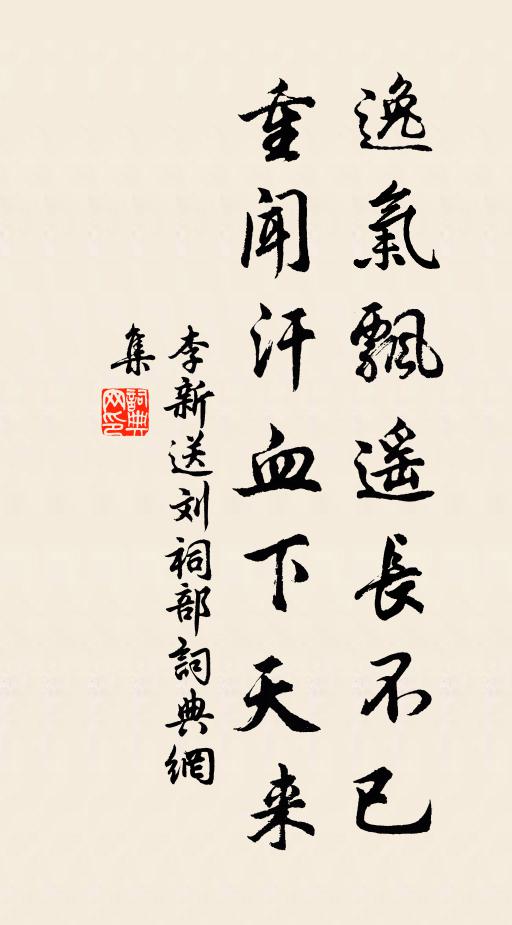 逸氣飄遥長不已
重闻汗血下天来
李新送刘祠部詞典網
集
詞典
网印